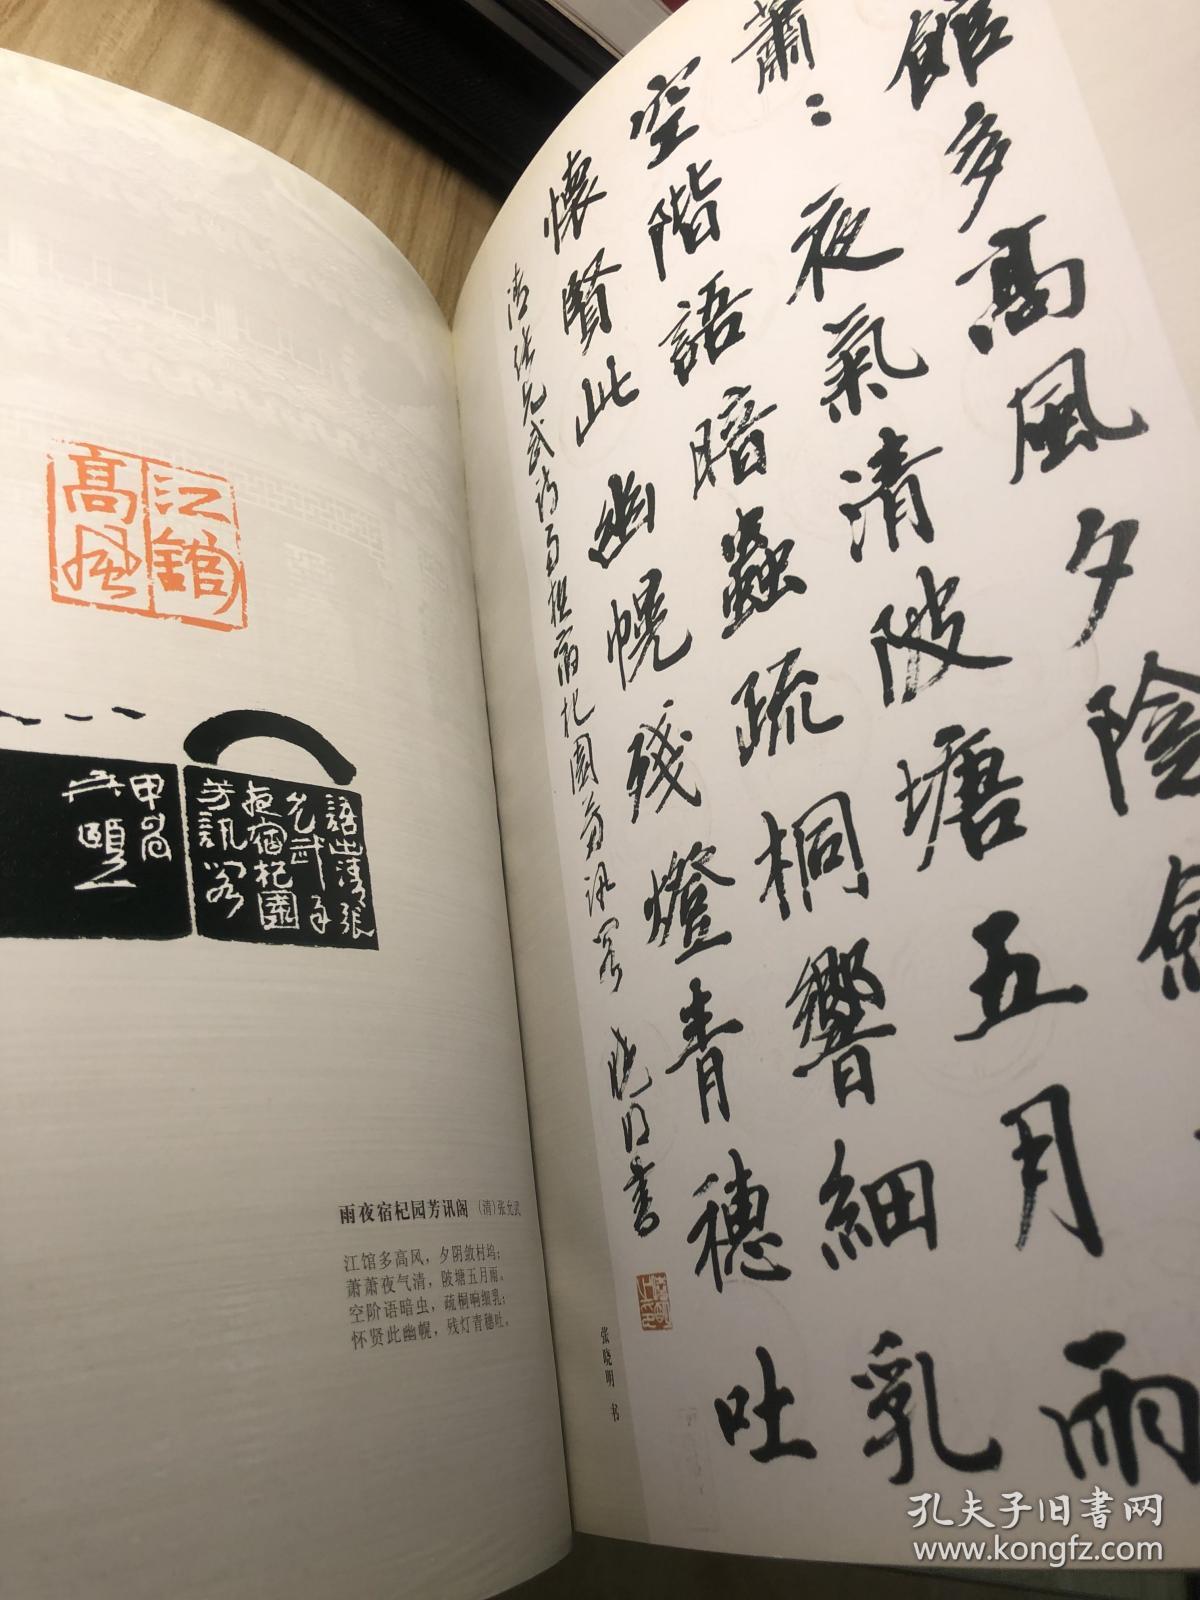 江館
高風
語出清張
允武雨
夜宿杞園
芳訊閣
甲
雨夜宿杞园芳讯阁 （清）张允武
江馆多高风，夕阴敛村坞；
萧萧夜气清，陂塘五月雨。
空阶语暗虫，疏桐响细乳；
怀贤此幽幌，残灯青穗吐。
館多高風夕陰斂
蕭：夜氣清陂塘五月雨
空階語暗蟲疏桐響細乳
懷賢此幽幌殘燈青穗吐
清張允武詩雨夜宿杞園芳訊閣 曉明書
张晓明 书
孔夫子旧书网
www.kongfz.com